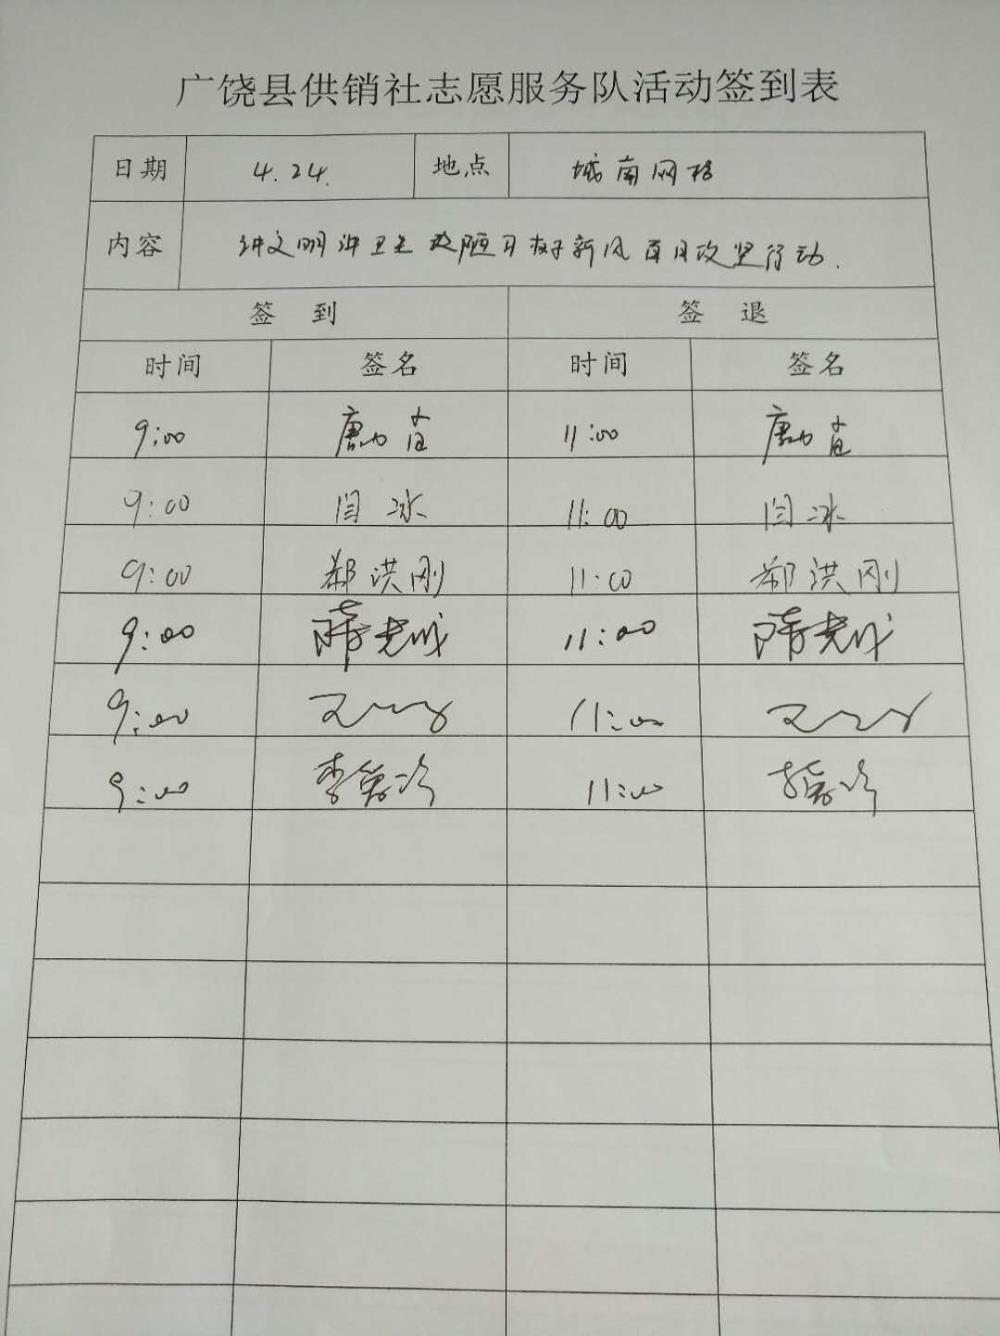 广饶县供销社志愿服务队活动签到表
日期 4.24. 地点 城南网格
内容 讲文明讲卫生改陋习树新风百日攻坚行动.
签到 签退
时间 签名 时间 签名
9:00 11:00
9:00 闫冰 11:00 闫冰
9:00 郑洪刚 11:00 郑洪刚
9:00 11:00
9:00 11:00
9:00 李 11:00